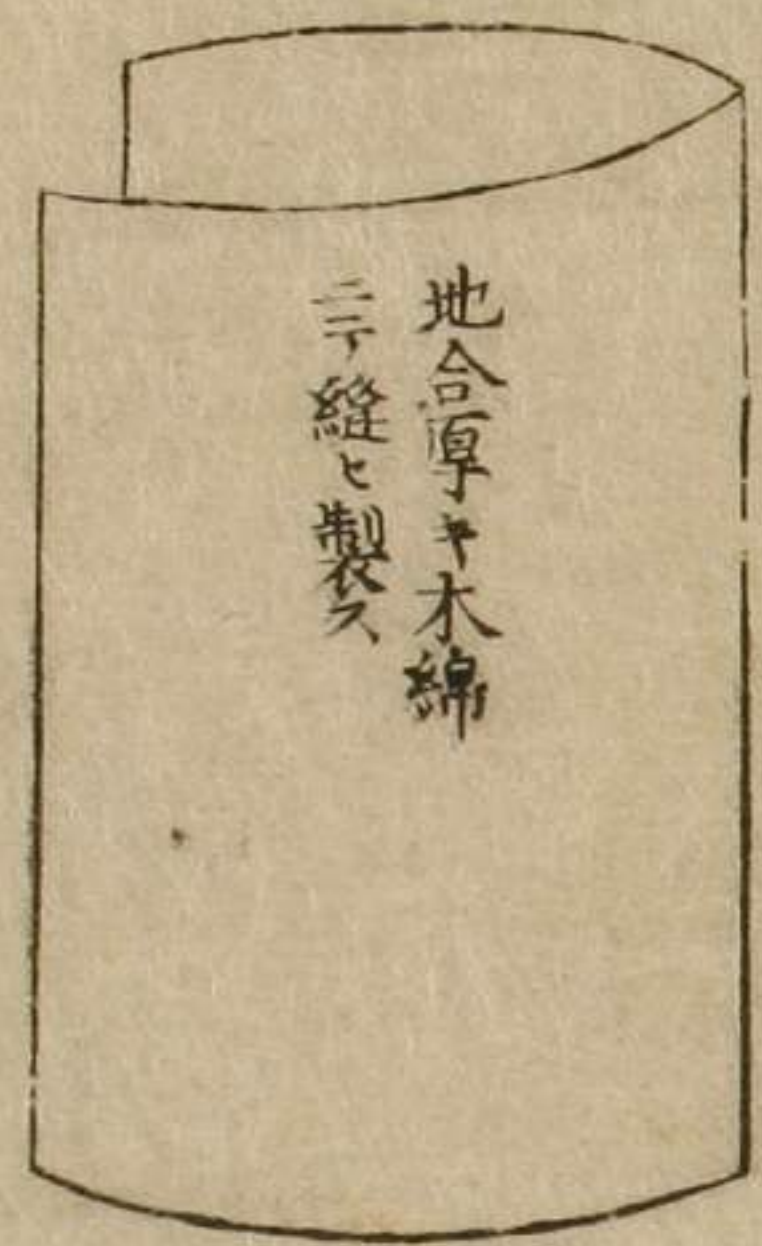 地合厚キ木綿
ニテ縫ヒ製ス